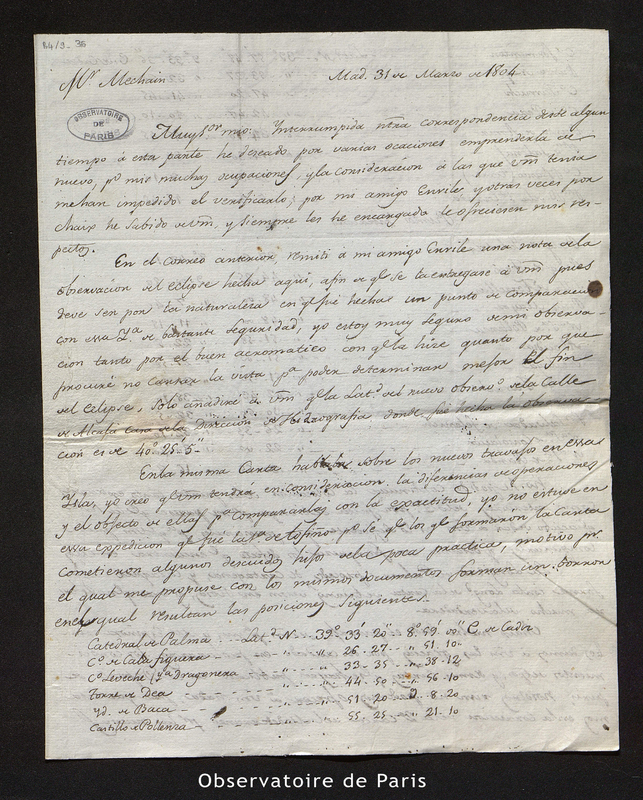 B4/9_ 36
Mr. Mechain
Mad. 31 de Marzo de 1804
OBSERVATOIRE
DE
PARIS
Muy sor. mio: Interrumpida ntra correspondencia desde algun
tiempo à esta parte he deseado por varias ocaciones emprenderla de
nuevo, po. mis muchas ocupaciones, y la consideracion à las que vm tenia
me han impedido el verificarlo; por mi amigo Enrile y otras veces por
Chaix he sabido de vm, y siempre les he encargado le ofreciesen mis res-
petos.
En el correo anterior, remiti à mi amigo Enrile una nota de la
observacion del eclipse hecha aqui, afin de qe. se la entregase à vm pues
deve ser por la naturaleza en qe. fue hecha un punto de comparacion
con essa de bastante seguridad, yo estoy muy seguro de mi observa-
cion tanto por el buen acromatico con qe. la hize quanto por que
procuré no cansar la vista pa. poder determinar mejor el fin
del eclipse, solo añadiré à vm qe. la Latd. del nuevo observo. de la Calle
de Alcala casa de la Direccion de Hidrografia donde fue hecha la observa-
cion es de 40°. 25'. 5".
En la misma Carta hablaba sobre los nuevos travajos en essas
Yslas, yo creo qe. vm tendrá en consideracion la diferencias de operaciones
y el objecto de ellas pa. compararlas con la exactitud, yo no estuve en
essa expedicion qe. fue la de Tofiño po. se qe. los qe. formaron la Carta
cometieron algunos descuidos hijos de la poca practica, motivo pr.
el qual me propuse con los mismos documentos formar un borron
en el qual resultan las posiciones siguientes.
Catedral de Palma .. Latd. N. .. 39°. 33'. 20" 8°. 59'. 00" E. de Cadiz
Co. de Cala figuera - - " .. " . 26 . 27 .. " 51 . 10
Co. Leveche (ya. Dragonera - - " .. " . 33 . 35 .. " 38 . 12
Torre de Dea - - " .. " . 44 . 50 .. " 56 . 10
yd. de Baca - - " .. " . 51 . 20 9 . 8 . 20
Castillo de Pollenza - - " .. " . 55 . 25 " 21 . 10
Observatoire de Paris